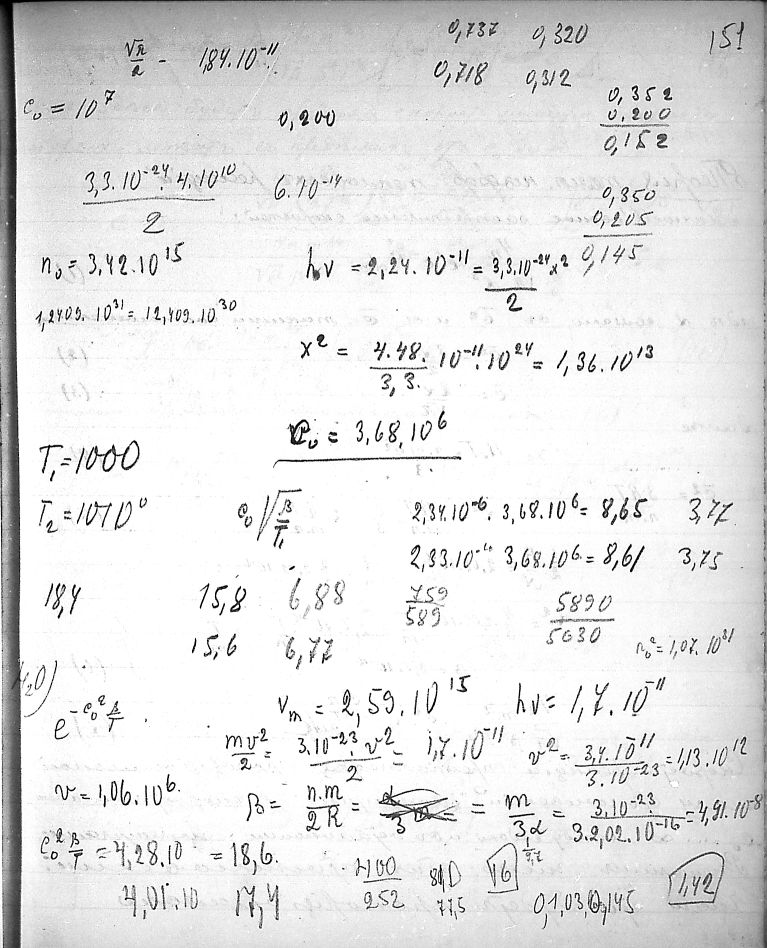 √π/2 - 1,84.10⁻¹¹ 0,737 0,320 151
0,718 0,312
c₀ = 10⁷ 0,200 0,352
0,200
0,152
3,3.10⁻²⁴.4.10¹⁰ / 2 6.10⁻¹⁴ 0,350
0,205
0,145
n₀ = 3,42.10¹⁵ hν = 2,24.10⁻¹¹ = 3,3.10⁻²⁴x² / 2
1,2409.10³¹ = 12,409.10³⁰
x² = 4.48. / 3,3. 10⁻¹¹.10²⁴ = 1,36.10¹³
c₀ = 3,68.10⁶
T₁ = 1000
T₂ = 1070° c₀ √β/T₁ 2,34.10⁻⁶. 3,68.10⁶ = 8,65 3,77
2,33.10⁻⁶ 3,68.10⁶ = 8,61 3,75
18,4 15,8 6,88 759/589 5890/5630
15,6 6,77 n₀² = 1,07.10³¹
H₂O)
νₘ = 2,59.10¹⁵ hν = 1,7.10⁻¹¹
e^(-c₀² β/T)
mv²/2 = 3.10⁻²³.v² / 2 = 1,7.10⁻¹¹ v² = 3,4.10⁻¹¹ / 3.10⁻²³ = 1,13.10¹²
v = 1,06.10⁶. β = n.m/2R = = m/3α = 3.10⁻²³ / 3.2,02.10⁻¹⁶ = 4,91.10⁻⁸
c₀² β/T = 4,28.10 = 18,6.
4,01.10 17,4 400/252 77,5 16 0,145 1,42